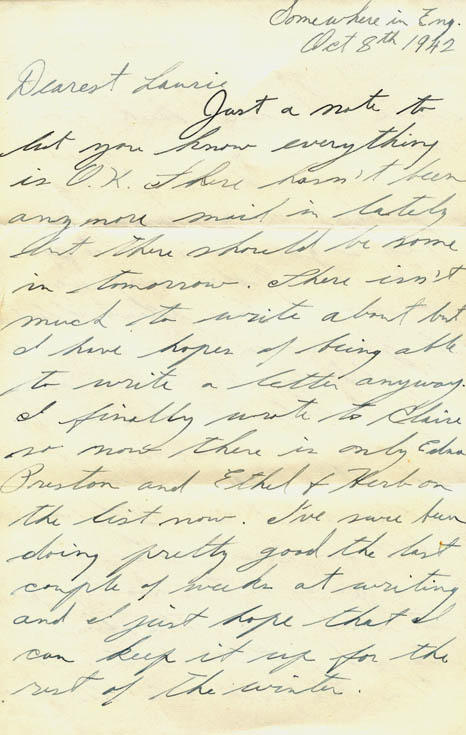 Somewhere in Eng.
Oct 8th 1942
Dearest Laurie
Just a note to
let you know everything
is O.K. There hasn't been
any more mail in lately
but there should be some
in tomorrow. There isn't
much to write about but
I have hopes of being able
to write a letter anyway.
I finally wrote to Claire
so now there is only Edna
Preston and Ethel & Herb on
the list now. I've sure been
doing pretty good the last
couple of weeks at writing
and I just hope that I
can keep it up for the
rest of the winter.